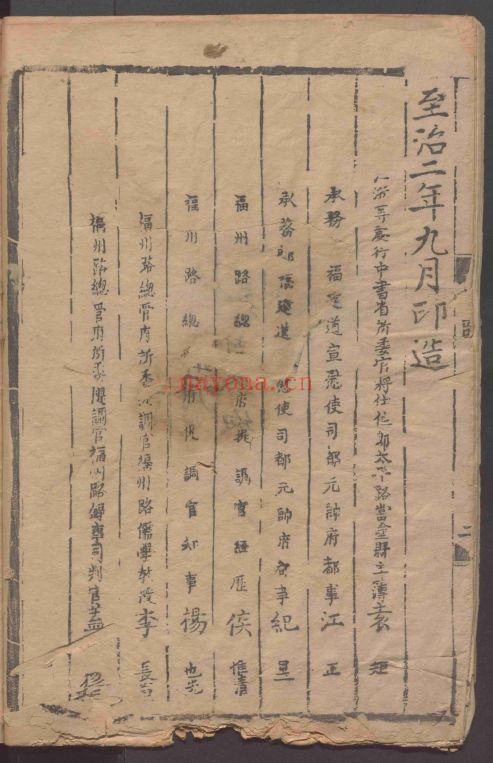 至治二年九月印造
等處行中書省所委官將仕佐郎太平路當塗縣主簿袁 矩
承務 福建道宣慰使司都元帥府都事江 正
承務郎福建道 慰使司都元帥府都事紀 昱
福州路總 府提調官經歷侯 惟清
福州路總 府提調官知事楊 也先
福州路總管府所委提調官福州路儒學教授李 長
福州路總管府所委提調官福州路錄事司判官孟
nayona.cn
二